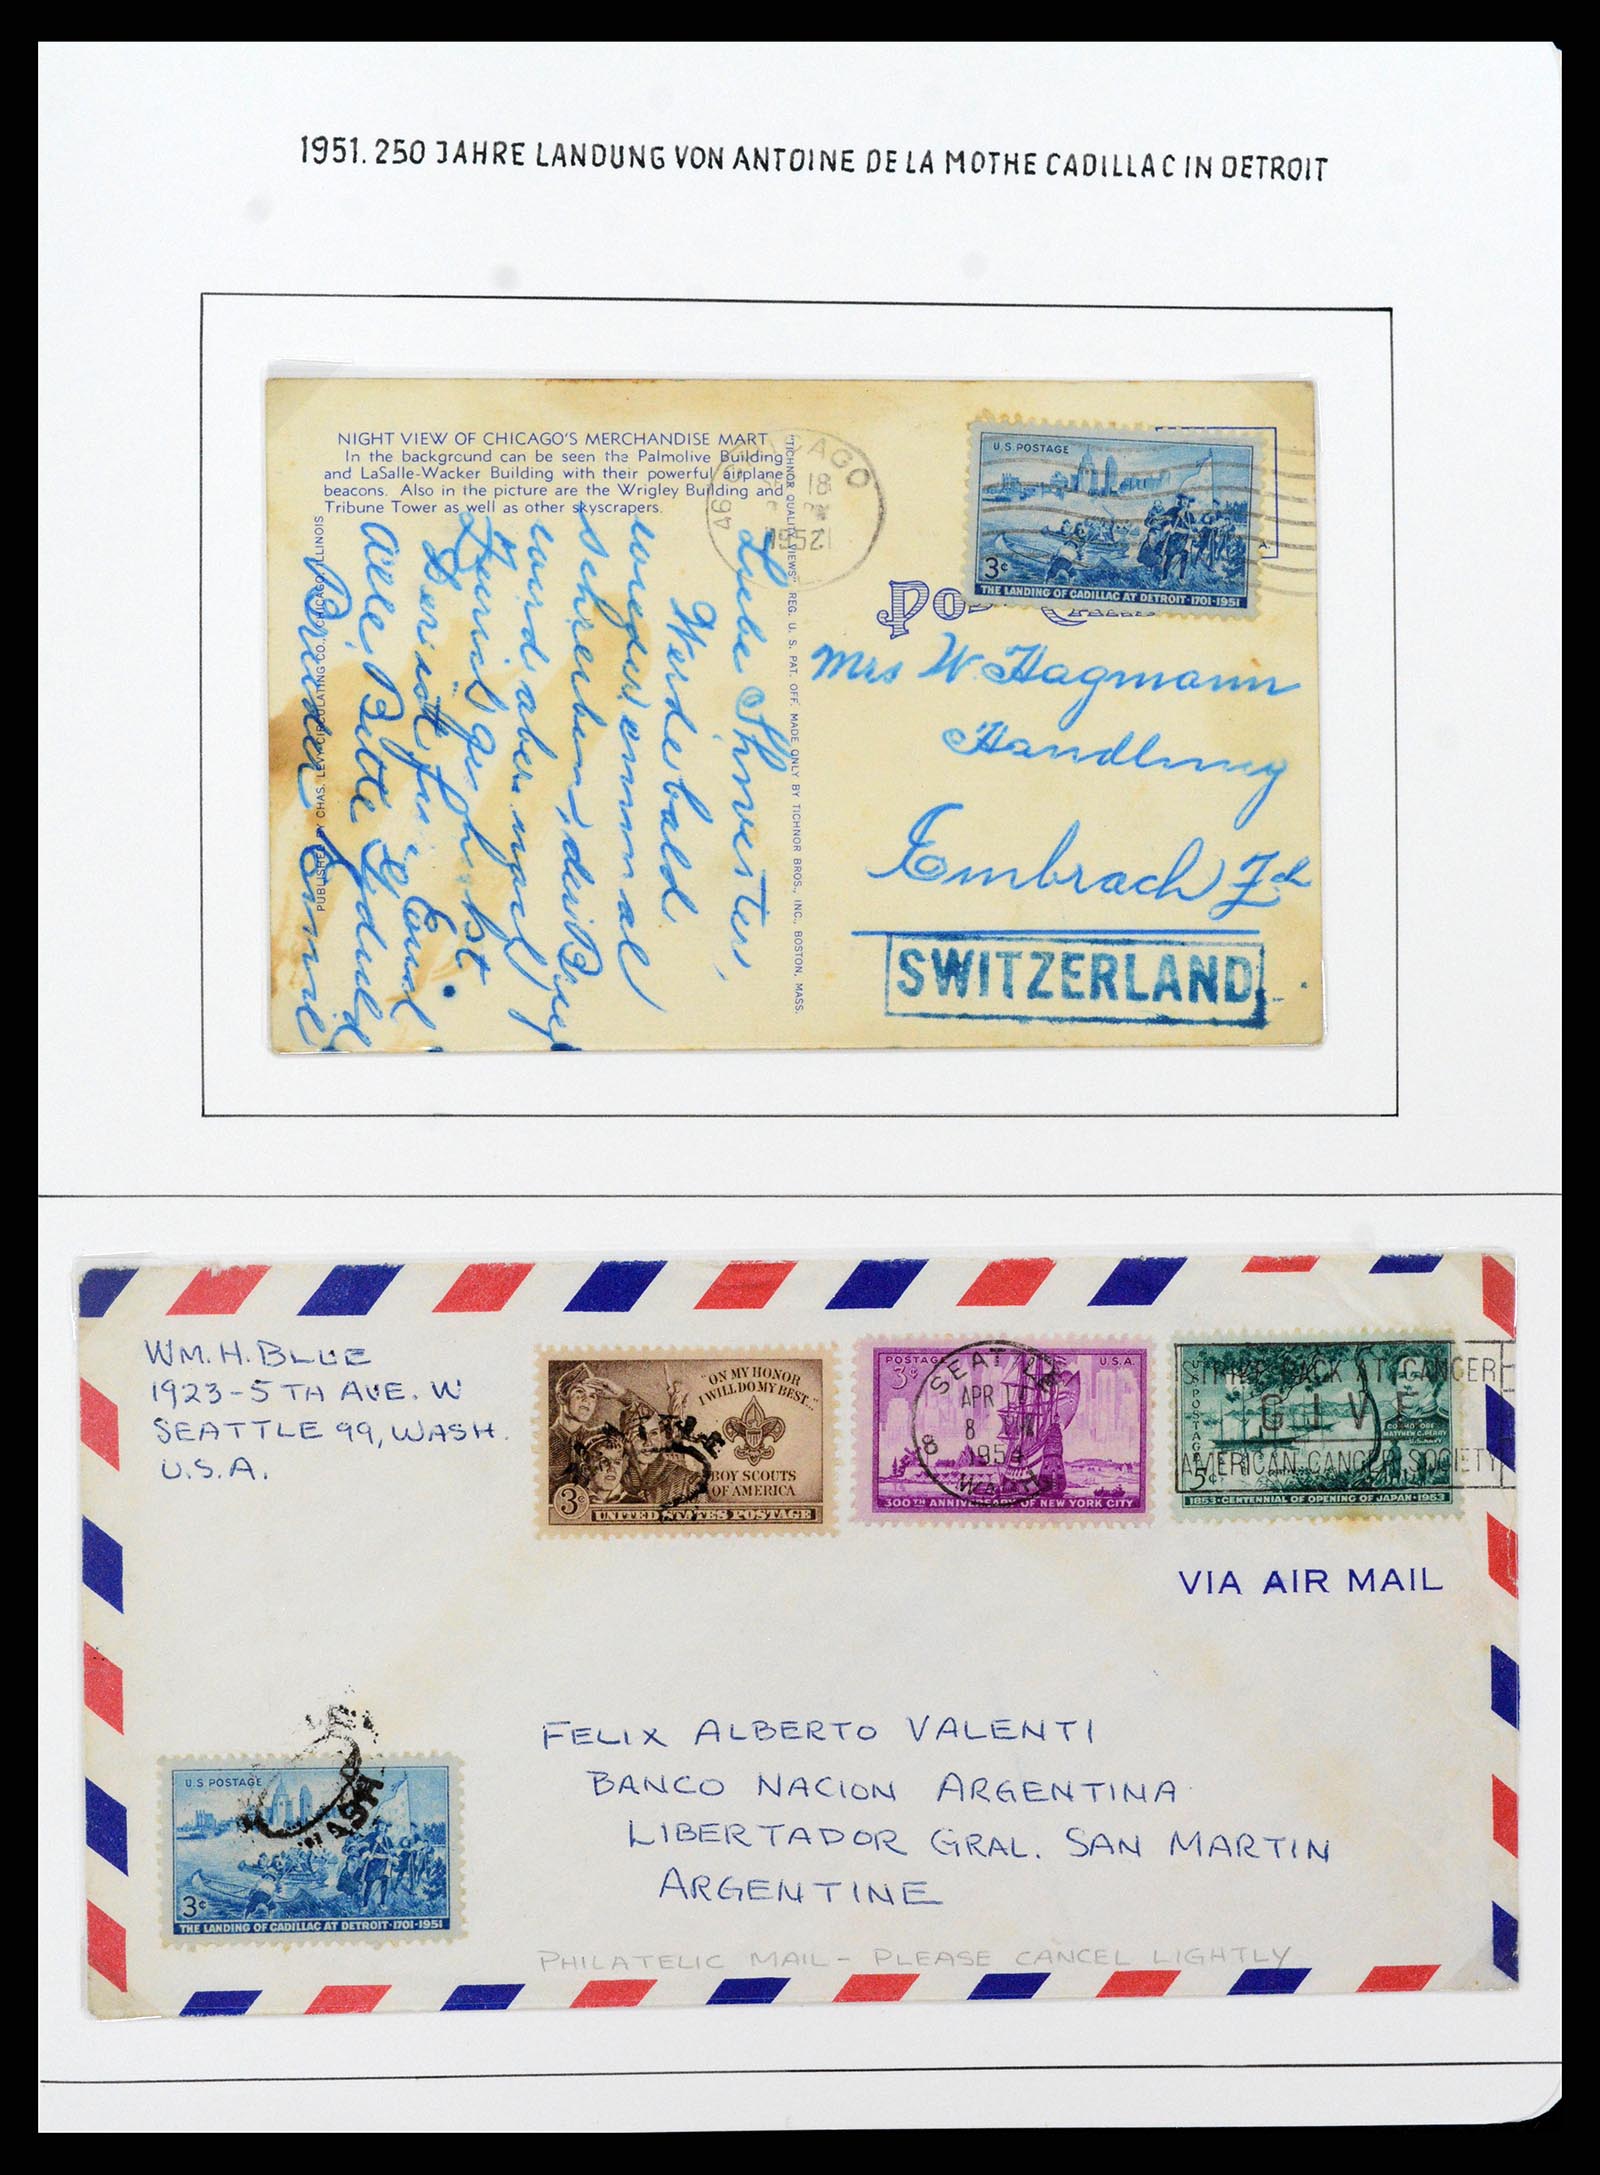 1951. 250 JAHRE LANDUNG VON ANTOINE DE LA MOTHE CADILLAC IN DETROIT
NIGHT VIEW OF CHICAGO'S MERCHANDISE MART
In the background can be seen the Palmolive Building
and LaSalle-Wacker Building with their powerful airplane
beacons. Also in the picture are the Wrigley Building and
Tribune Tower as well as other skyscrapers.
PUBLISHED BY CHAS. LEVY CIRCULATING CO., CHICAGO, ILLINOIS
"TICHNOR QUALITY VIEWS" REG. U. S. PAT. OFF. MADE ONLY BY TICHNOR BROS., INC., BOSTON, MASS.
CHICAGO
18
1952
U.S. POSTAGE
3¢
THE LANDING OF CADILLAC AT DETROIT·1701-1951
Liebe
Werde bald
wieder einmal
schreiben,
wird aber noch
alle Bitte
Mrs W. Hagmann
Handlung
Embrach Zch
SWITZERLAND
WM. H. BLUE
1923-5TH AVE. W
SEATTLE 99, WASH.
U.S.A.
"ON MY HONOR
I WILL DO MY BEST..."
BOY SCOUTS
OF AMERICA
3¢
UNITED STATES POSTAGE
POSTAGE
3¢
U.S.A.
300TH ANNIVERSARY OF NEW YORK CITY
SEATTLE
APR 17
8
WASH
U.S. POSTAGE
5¢
COMMODORE
MATTHEW C. PERRY
1853·CENTENNIAL OF OPENING OF JAPAN·1953
STRIKE BACK AT CANCER
GIVE
AMERICAN CANCER SOCIETY
VIA AIR MAIL
FELIX ALBERTO VALENTI
BANCO NACION ARGENTINA
LIBERTADOR GRAL. SAN MARTIN
ARGENTINE
U.S. POSTAGE
3¢
THE LANDING OF CADILLAC AT DETROIT·1701-1951
WASH
PHILATELIC MAIL - PLEASE CANCEL LIGHTLY